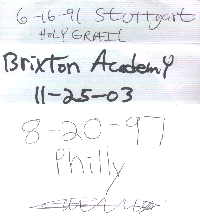 6-16-91 Stuttgart
HOLY GRAIL
Brixton Academy
11-25-03
8-20-97
Philly